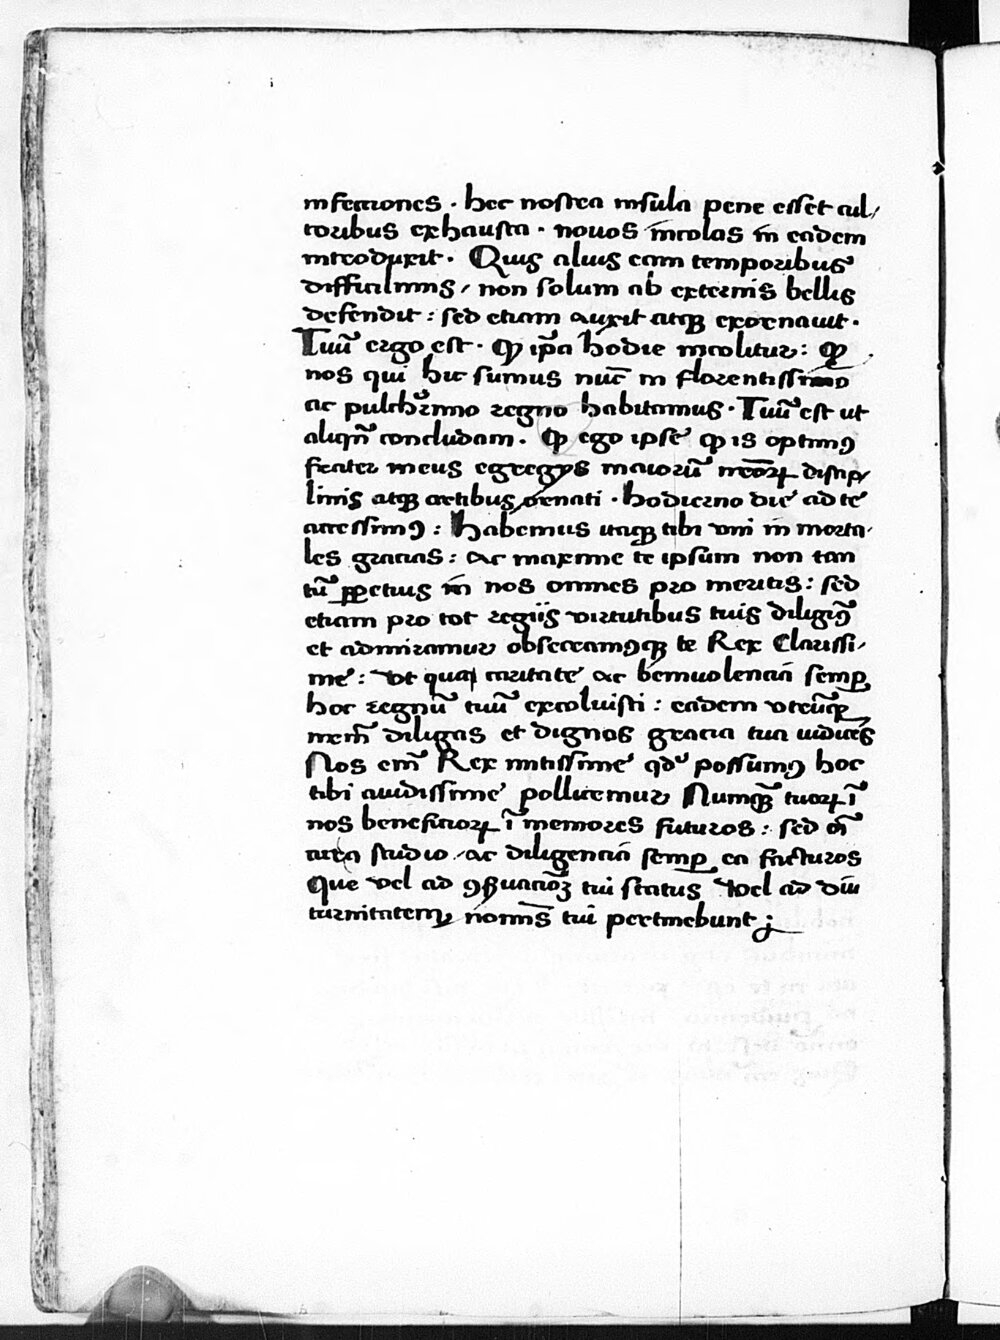 infectiones . hec nostra insula pene esset cul/
toribus exhausta . nouos incolas in eadem
introduxit . Quis alius eam temporibus
difficilimis / non solum ab externis bellis
defendit : sed etiam auxit atqꝫ exornauit .
Tuū ergo est . Ꝙ ip̄a hodie incolitur : Ꝙ
nos qui hic sumus nūc in florentissimo
ac pulcherrimo regno habitamus . Tuū est ut
aliqn̄ concludam . Ꝙ ego ipse ꝙ is optimꝯ
frater meus egregijs maiorū nr̄oꝝ discip/
linis atqꝫ artibus ornati . hodierno die ad te
accessimꝯ : Habemus itaqꝫ tibi uni in morta/
les gracias : ac maxime te ipsum non tan
tū ꝑpetuis in nos omnes pro meritis : sed
etiam pro tot regiis virtutibus tuis diligimꝯ
et admiramur obsecramꝯqꝫ te Rex Clarissi/
me : vt qua caritate ac beniuolencia semꝑ
hoc regnū tuū excoluisti : eadem utrūqꝫ
nr̄m diligas et dignos gracia tua iudices
Nos em̄ Rex mitissime qd possumꝯ hoc
tibi auidissime pollicemur Numqꝫ tuoꝝ ī
nos beneficioꝝ īmemores futuros : sed om̄
cura studio ac diligencia semꝑ ea facturos
Que vel ad ꝯẜuacioꝫ tui status vel ad diu
turnitatem nominis tui pertinebunt ;